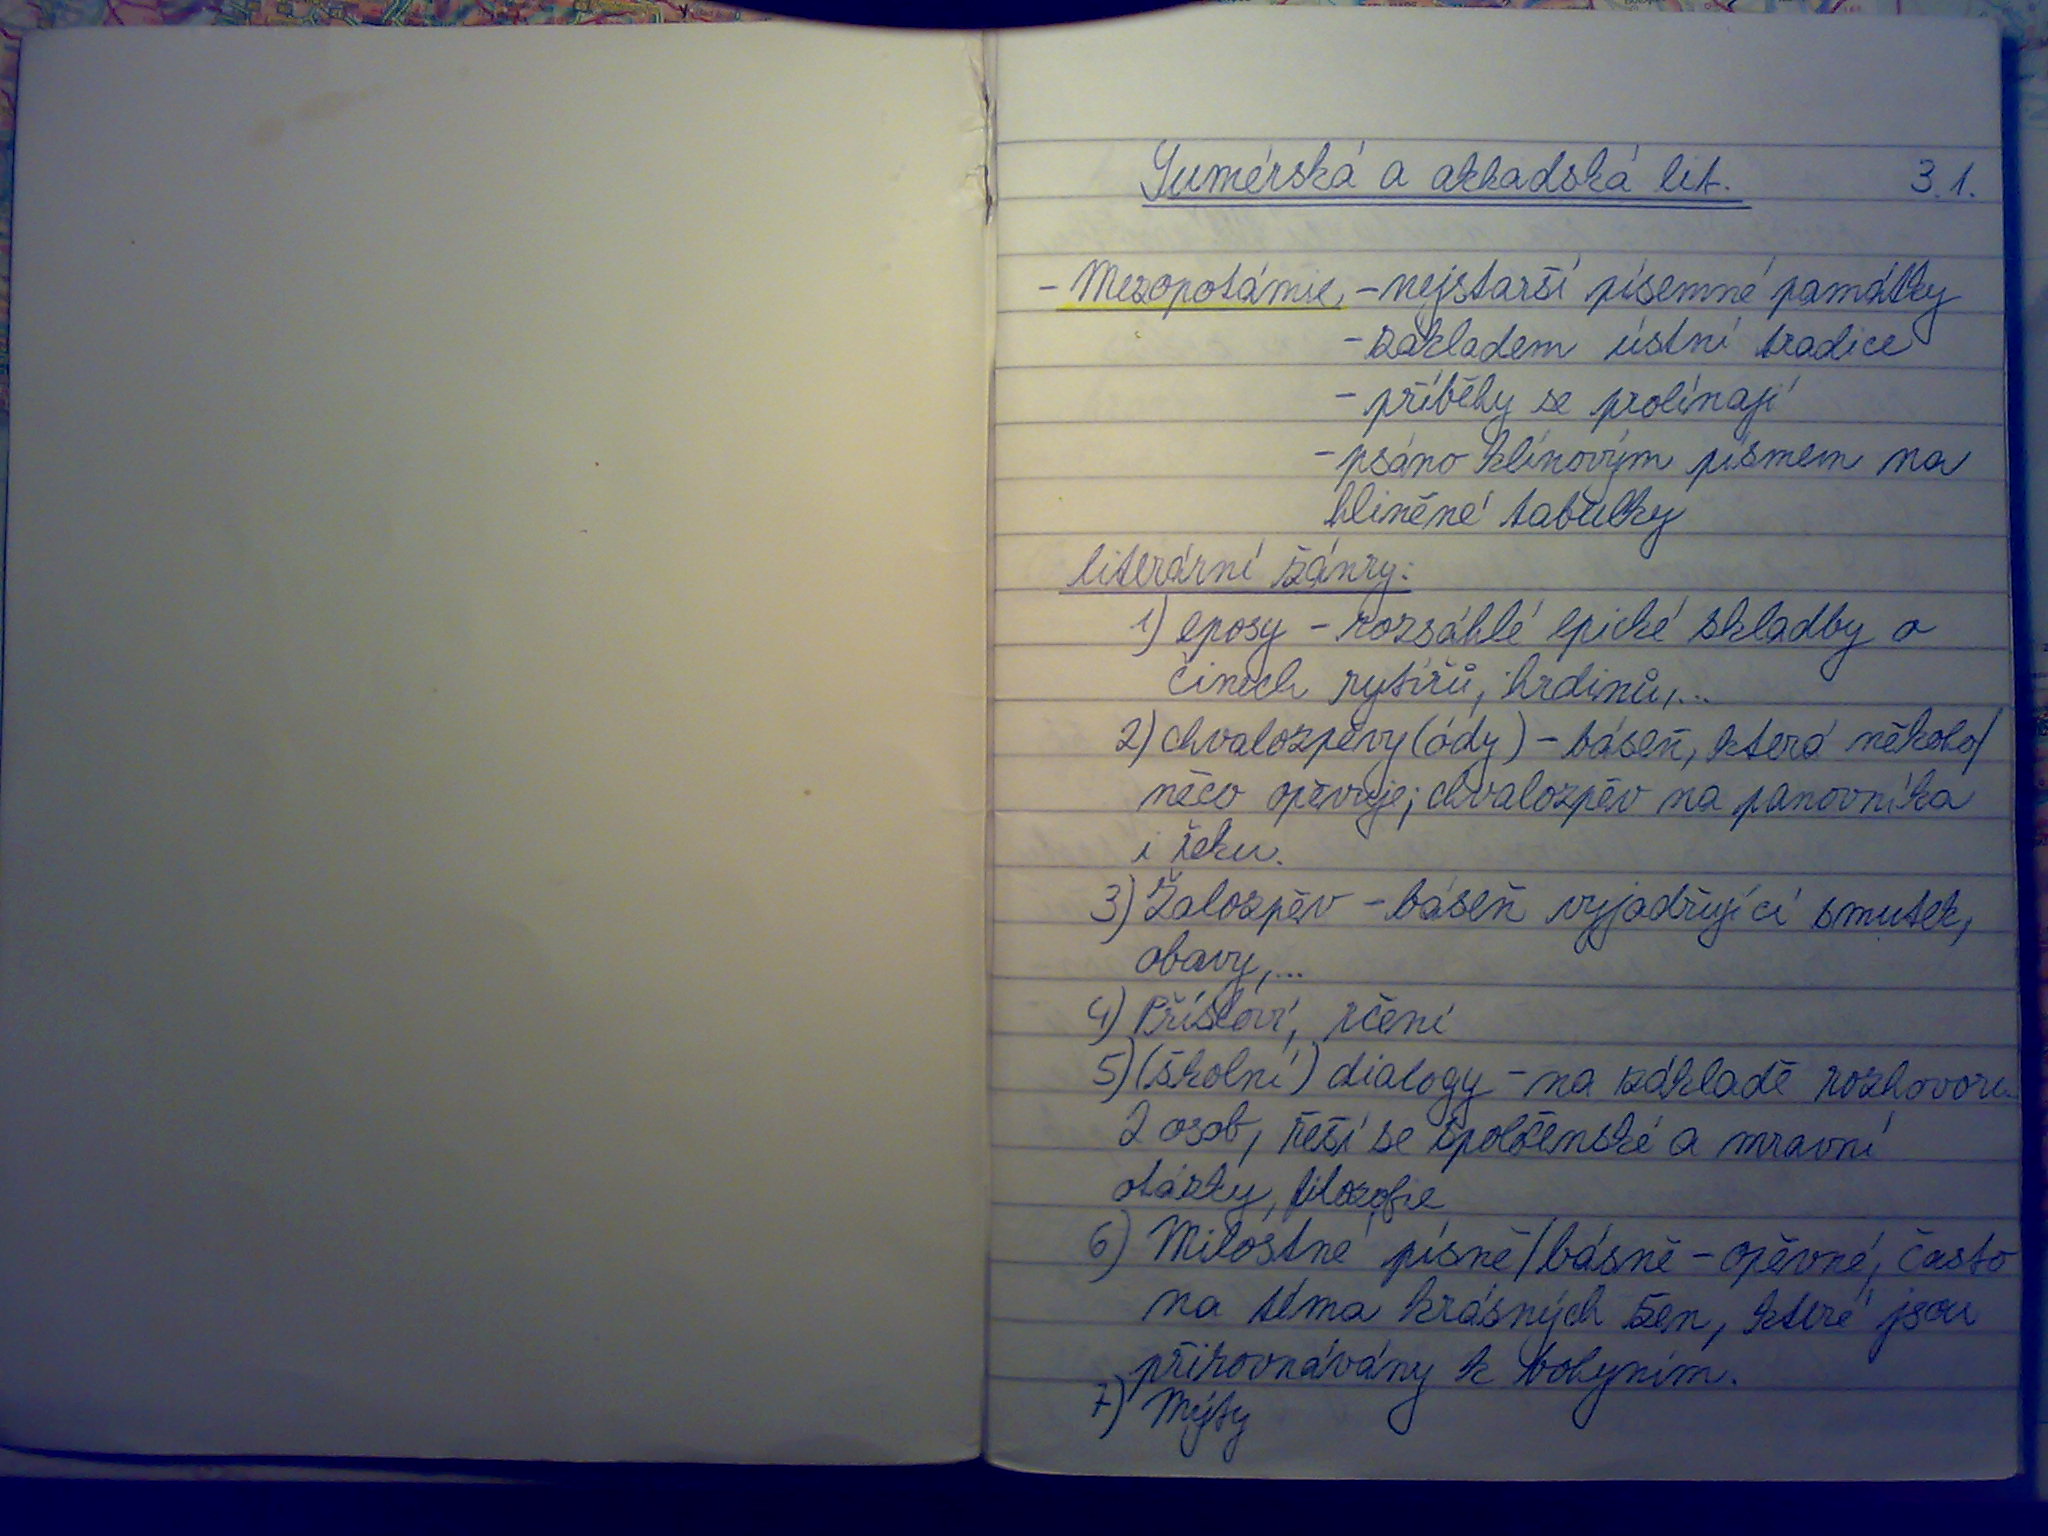 Sumérská a akkadská lit. 3.1.
- Mezopotámie, - nejstarší písemné památky
- základem ústní tradice
- příběhy se prolínají
- psáno klínovým písmem na
hliněné tabulky
literární žánry:
1) eposy - rozsáhlé epické skladby o
činech rytířů, hrdinů,...
2) chvalozpěvy (ódy) - báseň, která někoho/
něco opěvuje; chvalozpěv na panovníka
i řeku.
3) Žalozpěv - báseň vyjadřující smutek,
obavy,...
4) Přísloví, rčení
5) (školní) dialogy - na základě rozhovoru
2 osob, řeší se společenské a mravní
otázky, filozofie
6) Milostné písně/básně - opěvné, často
na téma krásných žen, které jsou
přirovnávány k bohyním.
7) Mýty